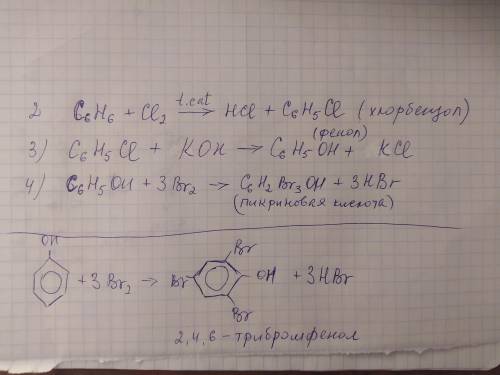 2 C6H6 + Cl2 t.cat → HCl + C6H5Cl (хлорбензол)
3) C6H5Cl + KOH → C6H5OH + KCl
(фенол)
4) C6H5OH + 3Br2 → C6H2Br3OH + 3HBr
(пикриновая кислота)
OH + 3Br2 → Br Br OH Br + 3HBr
2,4,6 - трибромфенол